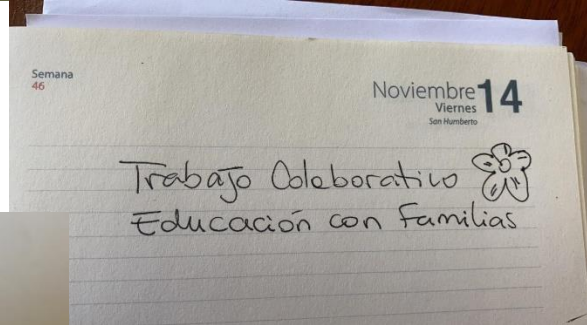 Semana
46
Noviembre 14
Viernes
San Humberto
Trabajo Colaborativo
Educación con Familias